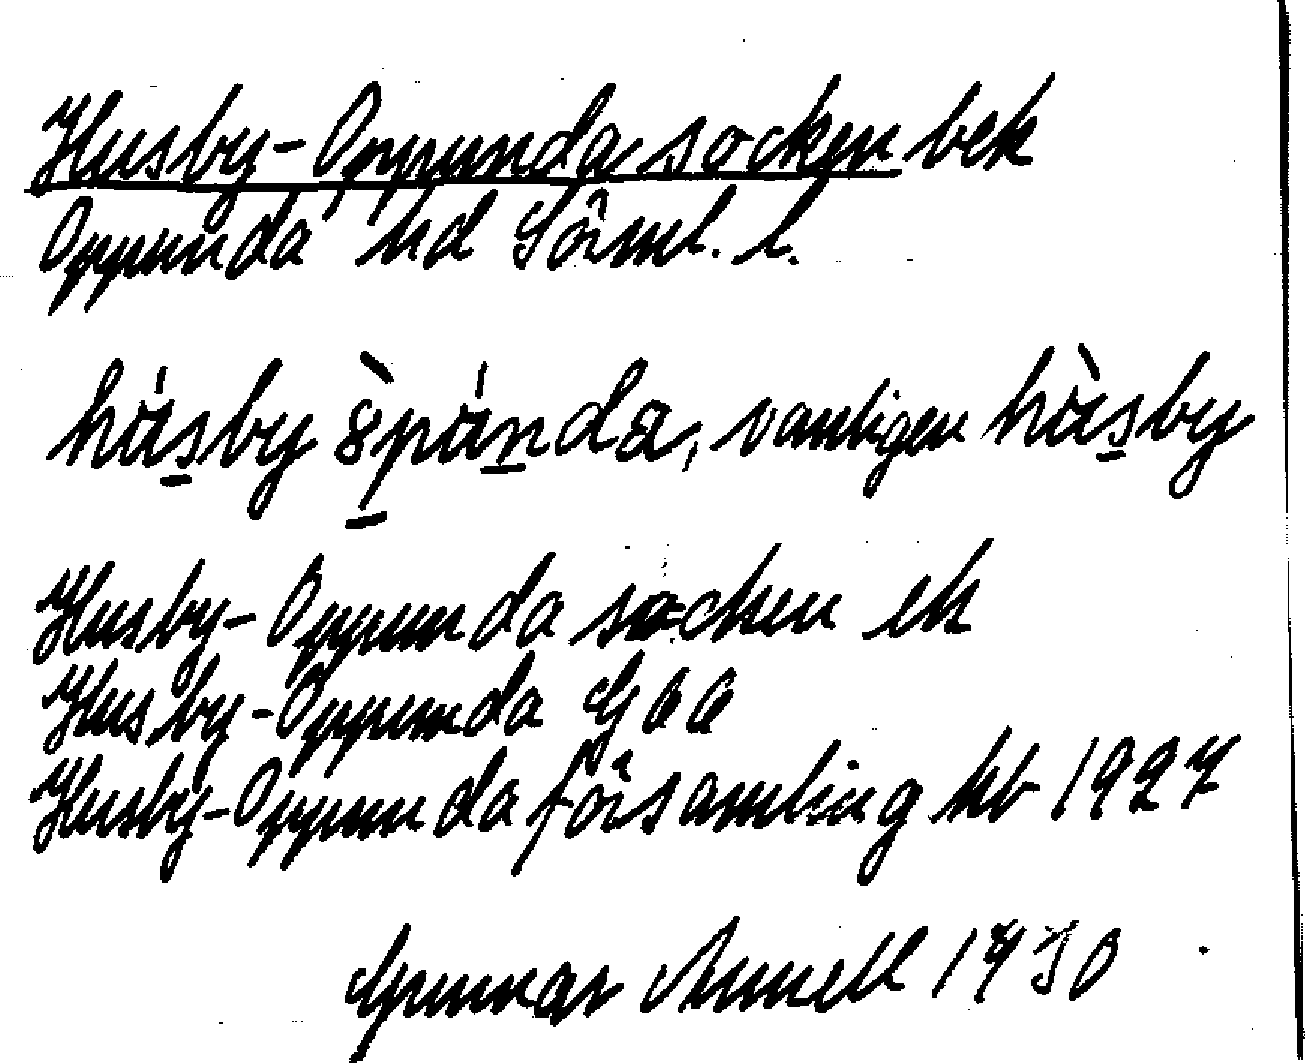 Husby-Oppunda socken bek
Oppunda hd Söml. l.
húsby 8̀púnda, vanligen hùsby
Husby-Oppunda socken ek
Husby-Oppunda GAA
Husby-Oppunda församling kb 1927
Gunnar Annell 1930